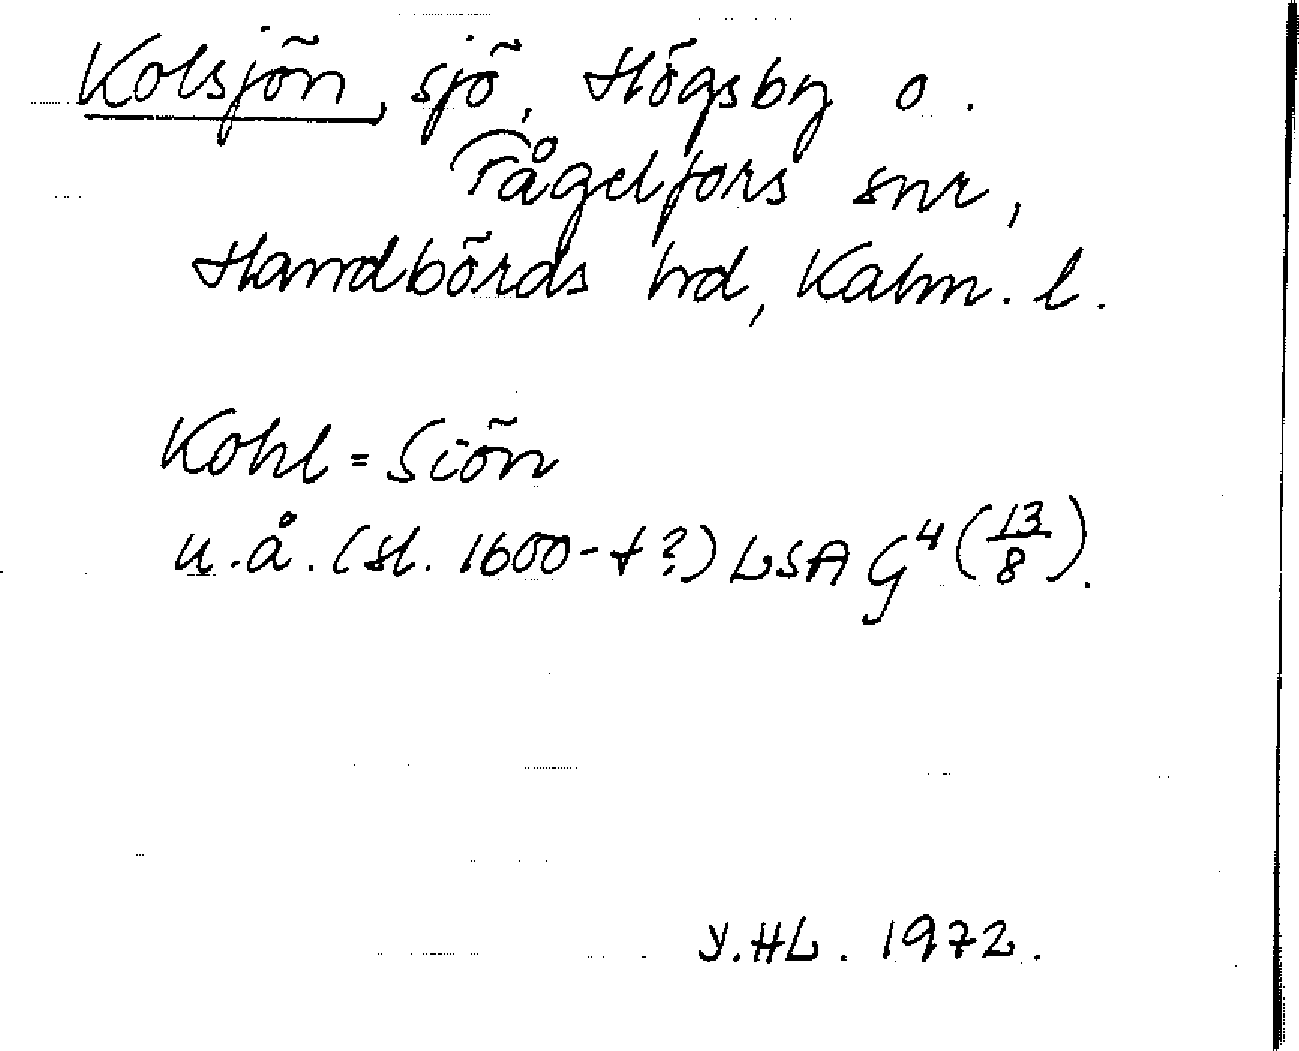 Kolsjön, sjö, Högsby o.
Fågelfors snr,
Handbörds hd, Kalm. l.
Kohl=Siön
u.å. (sl. 1600-t?) LSA G⁴ (13/8).
Y.HL. 1972.